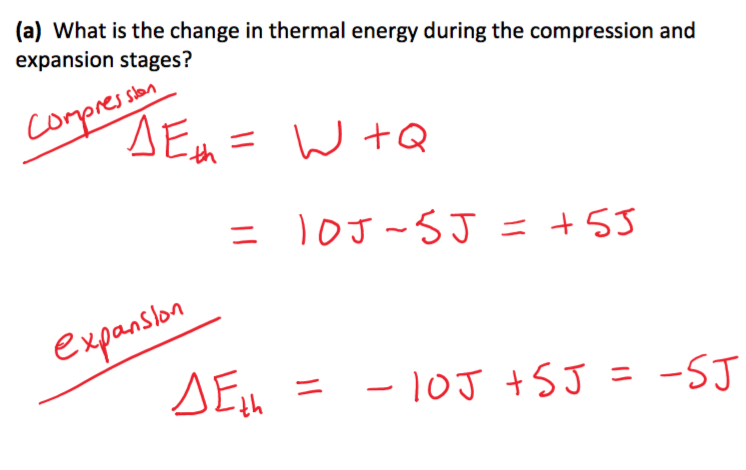 (a) What is the change in thermal energy during the compression and
expansion stages?
compression
ΔEth = W + Q
= 10J - 5J = +5J
expansion
ΔEth = -10J +5J = -5J